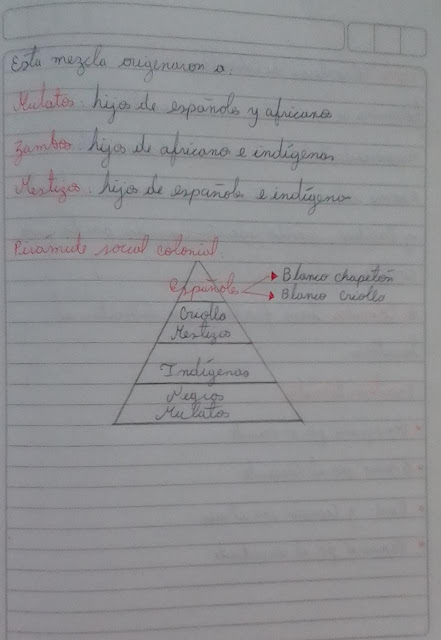 Esta mezcla origenaron a:
Mulatos: hijos de españoles y africanos
Zambos: hijos de africano e indígenas
Mestizos: hijos de españoles e indígena
Pirámide social colonial.
españoles
Blanco chapetón
Blanco criollo
Criollo
Mestizos
Indígenas
Negros
Mulatos